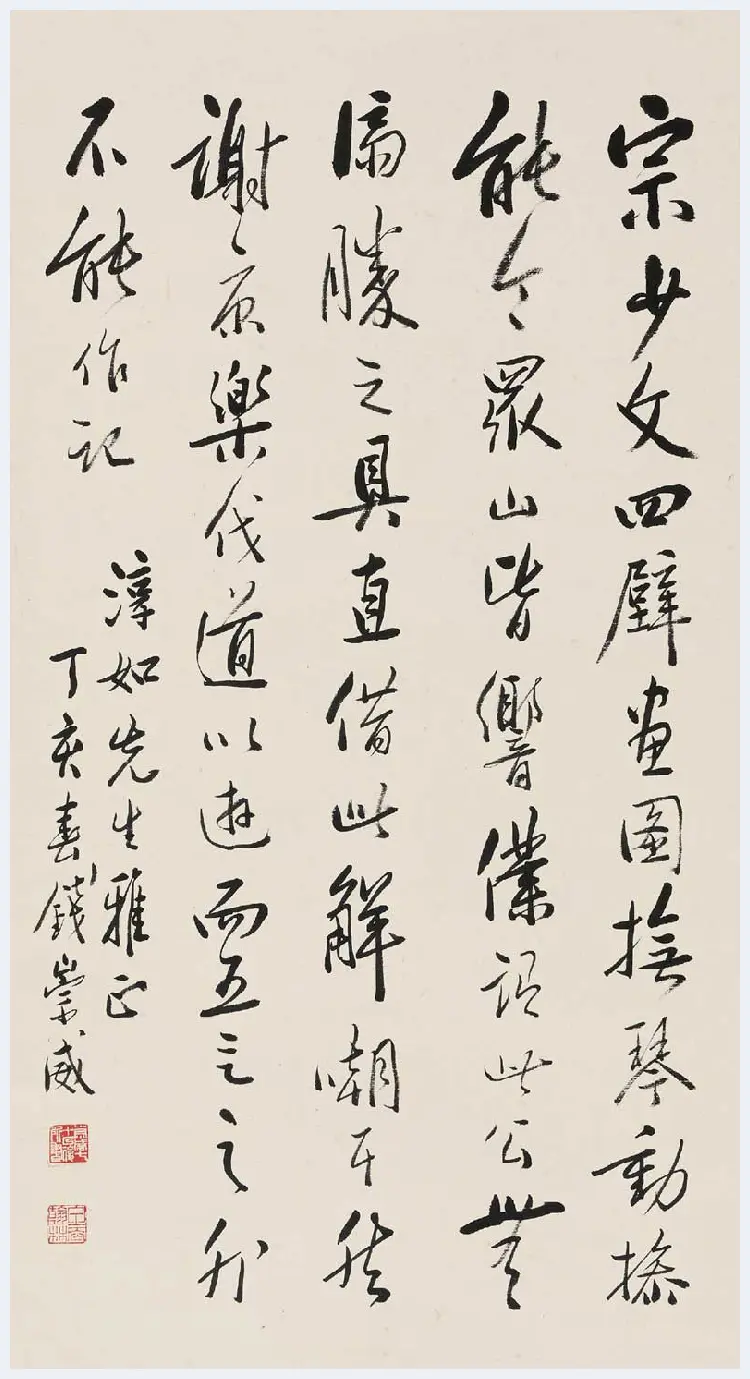 宗少文四壁畫圖撫琴動操
能令眾山皆響僕謂此公無
濟勝之具直借此解嘲耳然
謝康樂伐道以遊而五言之外
不能作記
淳如先生雅正
丁亥春錢崇威